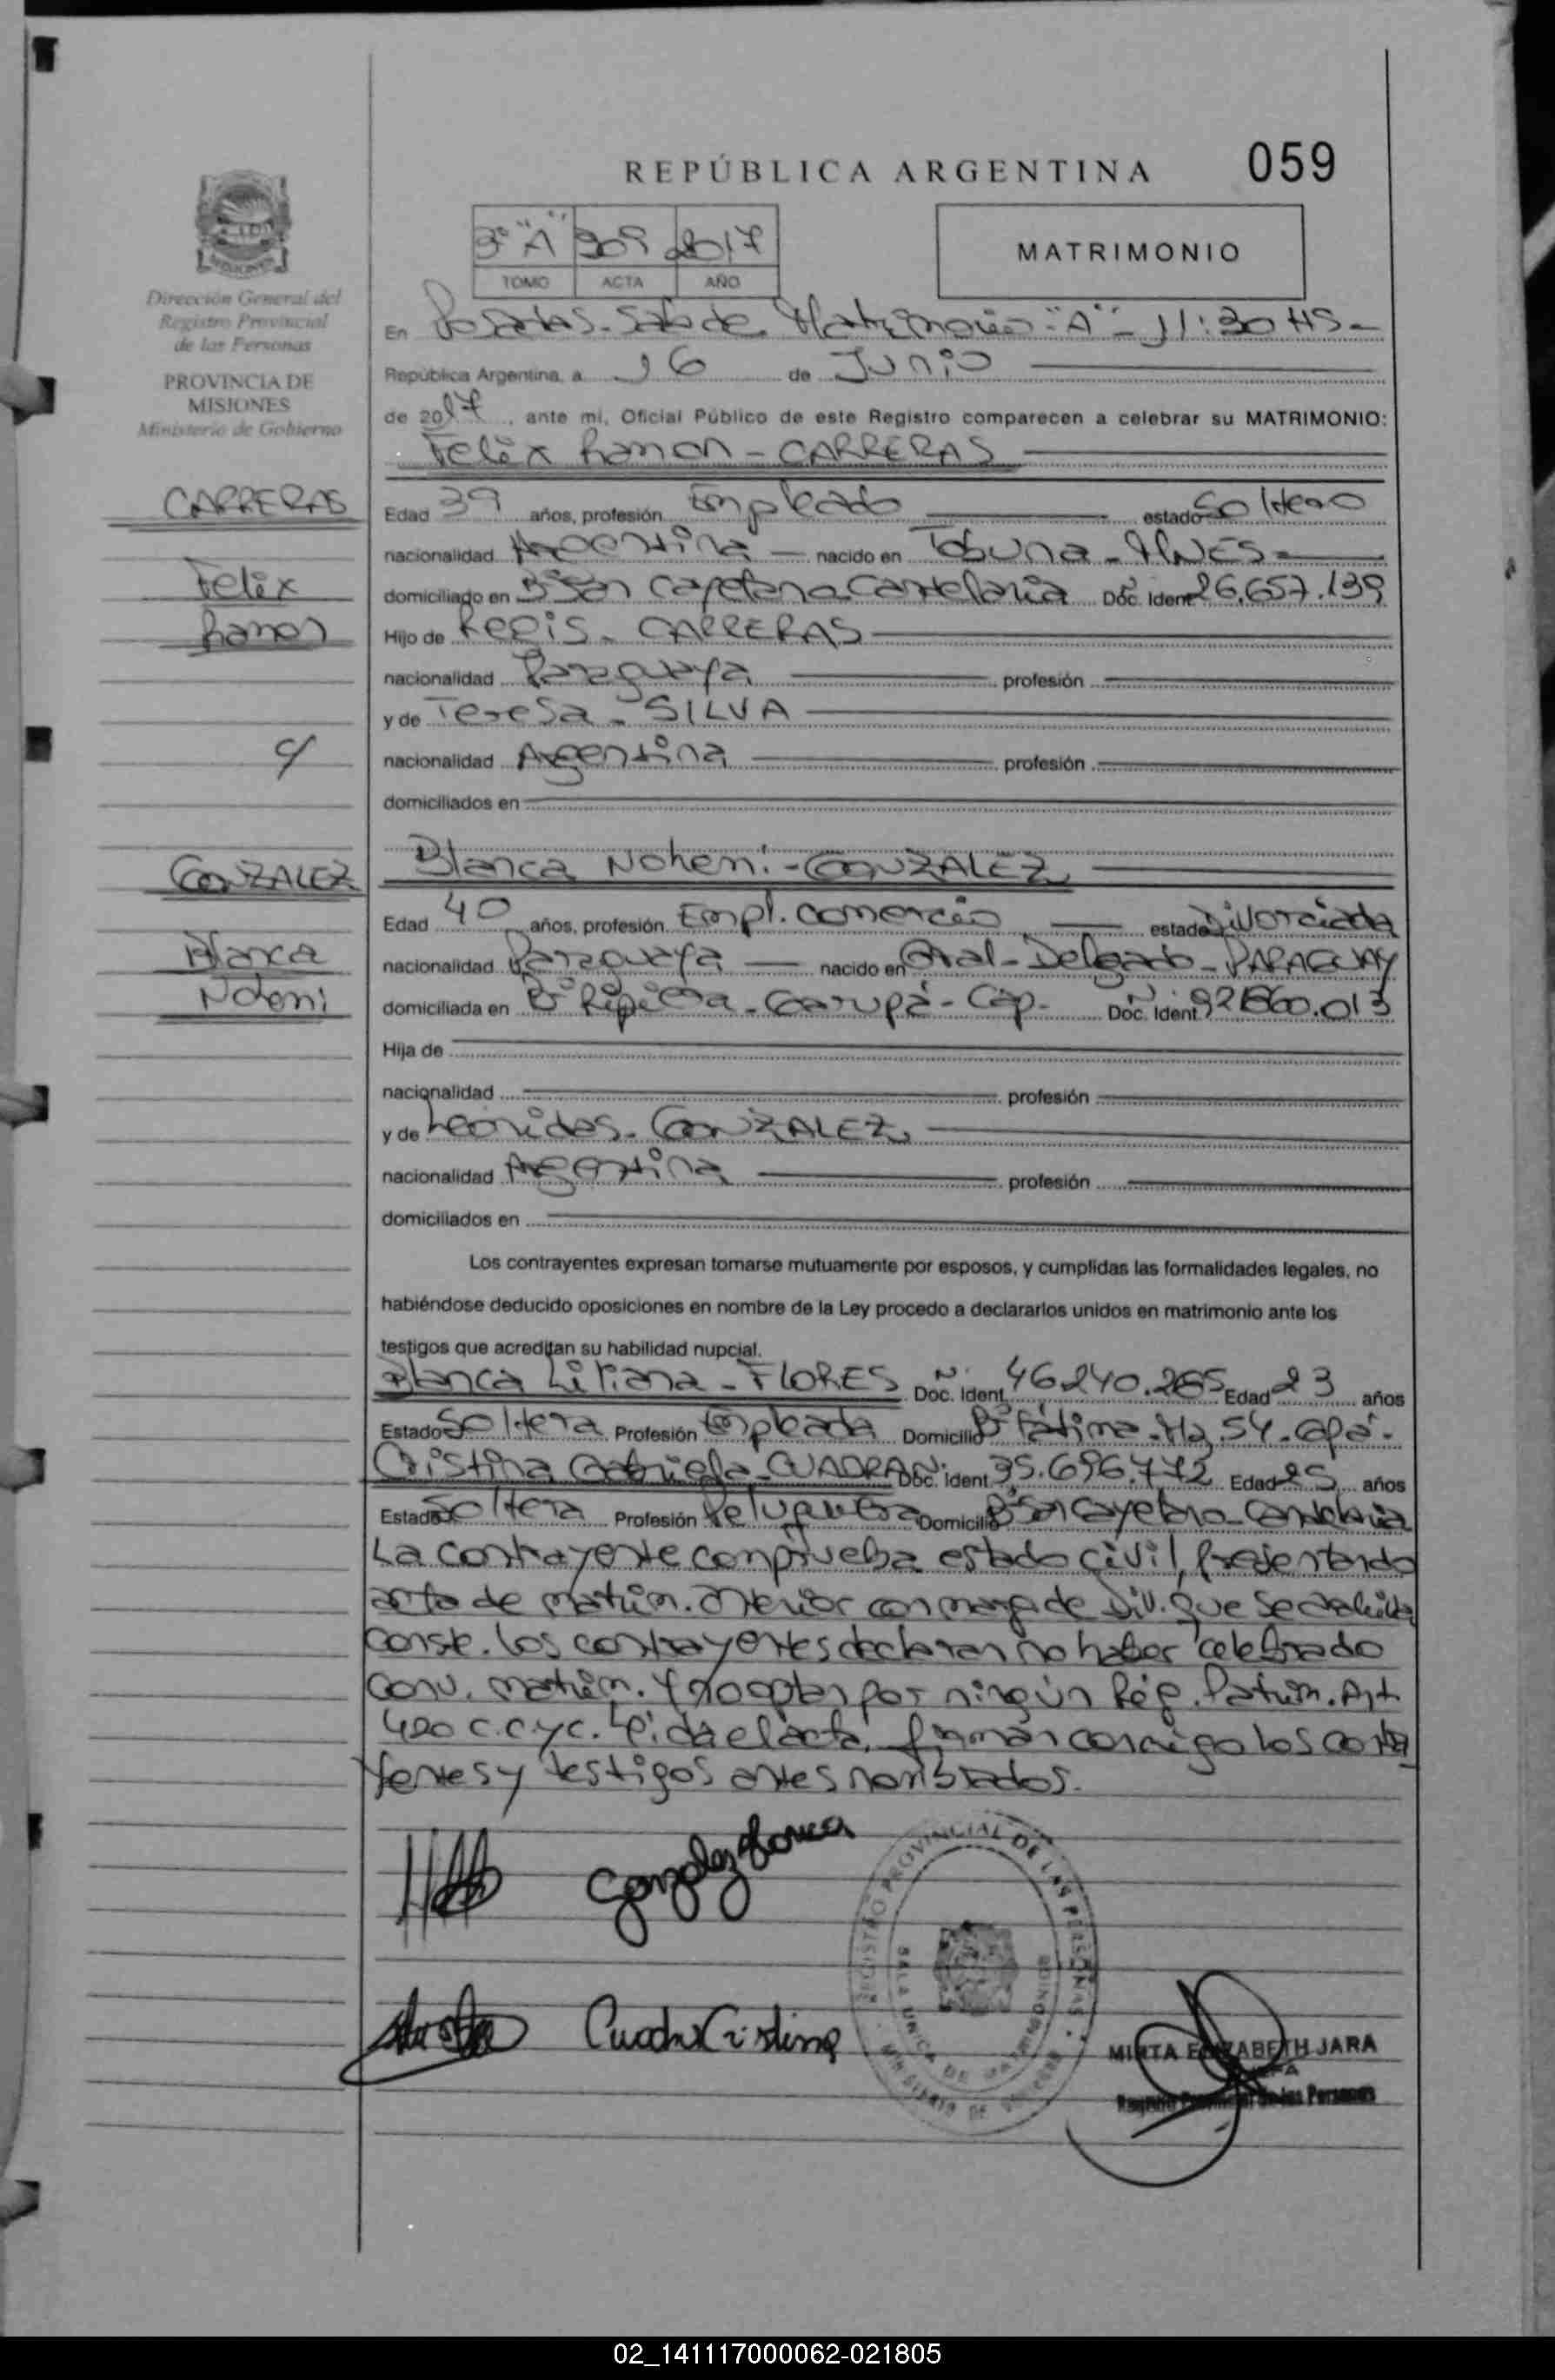 REPÚBLICA ARGENTINA 059
3° "A" 909 2017
TOMO ACTA AÑO
MATRIMONIO
MISIONES
Dirección General del
Registro Provincial
de las Personas
PROVINCIA DE
MISIONES
Ministerio de Gobierno
CARRERAS
Felix
Ramon
c/
GONZALEZ
Blanca
Nohemi
En Posadas - Sala de Matrimonio "A" - 11:30 HS -
República Argentina, a 16 de Junio
de 2017, ante mi, Oficial Público de este Registro comparecen a celebrar su MATRIMONIO:
Felix Ramon - CARRERAS
Edad 39 años, profesión Empleado estado Soltero
nacionalidad Argentina nacido en Tobuna - MNES
domiciliado en B° San Cayetano Candelaria Doc. Ident 26.657.139
Hijo de Regis - CARRERAS
nacionalidad Paraguaya profesión
y de Teresa - SILVA
nacionalidad Argentina profesión
domiciliados en
Blanca Nohemi - GONZALEZ
Edad 40 años, profesión Empl. comercio estado Divorciada
nacionalidad Paraguaya nacido en Gral - Delgado - PARAGUAY
domiciliada en B° - Garupá - Cap - Doc. Ident 92860.013
Hija de
nacionalidad profesión
y de Leonidas - GONZALEZ
nacionalidad Argentina profesión
domiciliados en
Los contrayentes expresan tomarse mutuamente por esposos, y cumplidas las formalidades legales, no
habiéndose deducido oposiciones en nombre de la Ley procedo a declararlos unidos en matrimonio ante los
testigos que acreditan su habilidad nupcial.
Blanca Liliana - FLORES Doc. Ident. 46.240.265 Edad 23 años
Estado Soltera Profesión Empleada Domicilio B° Fátima - Mz 54 - Gpá -
Cristina Gabriela - CUADRA Doc. Ident 35.696.772 Edad 25 años
Estado Soltera Profesión Peluquera Domicilio B° San Cayetano - Candelaria
La contrayente comprueba estado civil, presentando
acta de matrim. anterior con marg. de Div. que se
conste. los contrayentes declaran no haber celebrado
conv. matrim. y no optan por ningún Rég. Patrim. Art
420 C.C.yC. Leída el acta, firman conmigo los contra
yentes y testigos antes nombrados.
Gonzalez Blanca
Cuadra Cristina
REGISTRO PROVINCIAL DE LAS PERSONAS
SALA UNICA DE MATRIMONIOS
MINISTERIO DE GOBIERNO
MIRTA ELIZABETH JARA
JEFA
Registro Provincial de las Personas
02_141117000062-021805